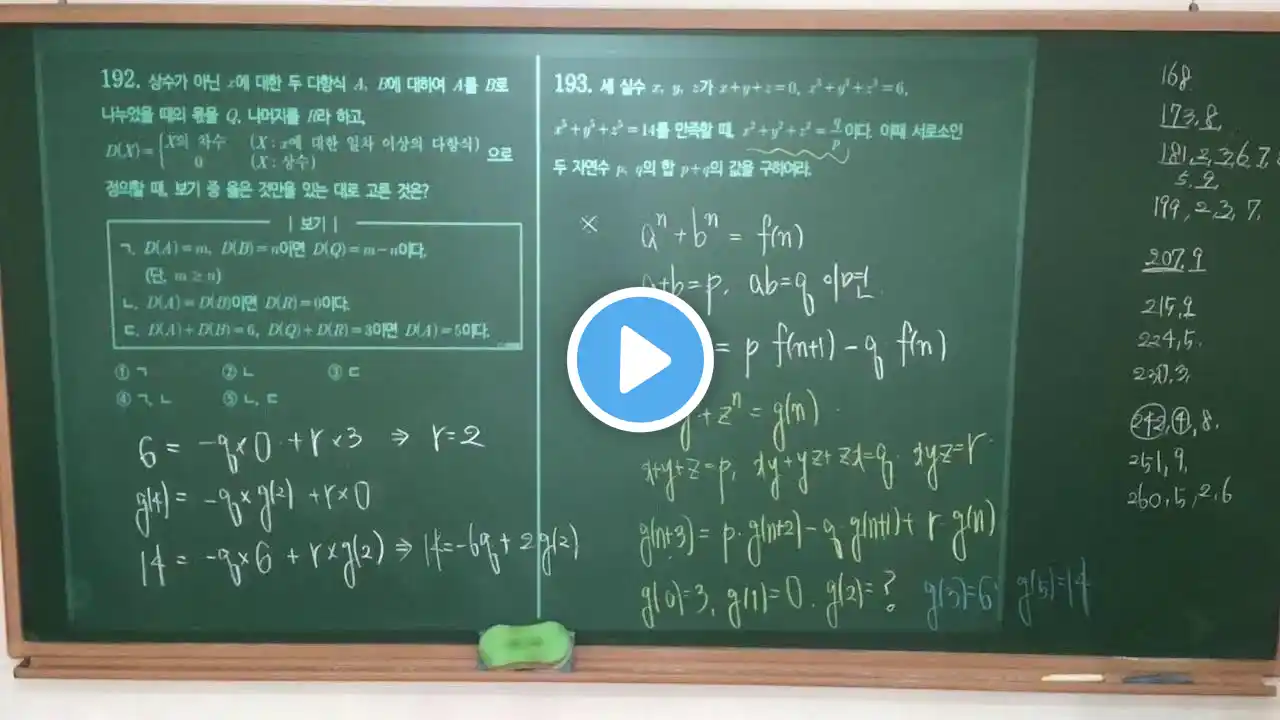 192. 상수가 아닌 x에 대한 두 다항식 A, B에 대하여 A를 B로
나누었을 때의 몫을 Q, 나머지를 R라 하고,
D(X)={X의 차수 (X : x에 대한 일차 이상의 다항식)
0 (X : 상수) 으로
정의할 때, 보기 중 옳은 것만을 있는 대로 고른 것은?
| 보기 |
ㄱ. D(A)=m, D(B)=n이면 D(Q)=m-n이다.
(단, m ≥ n)
ㄴ. D(A)=D(B)이면 D(R)=0이다.
ㄷ. D(A)+D(B)=6, D(Q)+D(R)=3이면 D(A)=5이다.
① ㄱ ② ㄴ ③ ㄷ
④ ㄱ, ㄴ ⑤ ㄴ, ㄷ
6 = -q×0 + r×3 ⇒ r=2
g(4) = -q×g(2) + r×0
14 = -q×6 + r×g(2) ⇒ 14=-6q+2g(2)
193. 세 실수 x, y, z가 x+y+z=0, x³+y³+z³=6,
x⁵+y⁵+z⁵=14를 만족할 때, x²+y²+z²=q/p이다. 이때 서로소인
두 자연수 p, q의 합 p+q의 값을 구하여라.
× aⁿ+bⁿ = f(n)
a+b=p, ab=q 이면
= p f(n+1) - q f(n)
+zⁿ = g(n)
x+y+z=p, xy+yz+zx=q, xyz=r
g(n+3) = p·g(n+2) - q g(n+1) + r·g(n)
g(0)=3, g(1)=0, g(2)=? g(3)=6 g(5)=14
168
173,8,
181,2,3,6,7,
5,9
199,2,3,7.
207,9
215,9
224,5.
230,3,
242,4,8.
251,9,
260,5,2,6